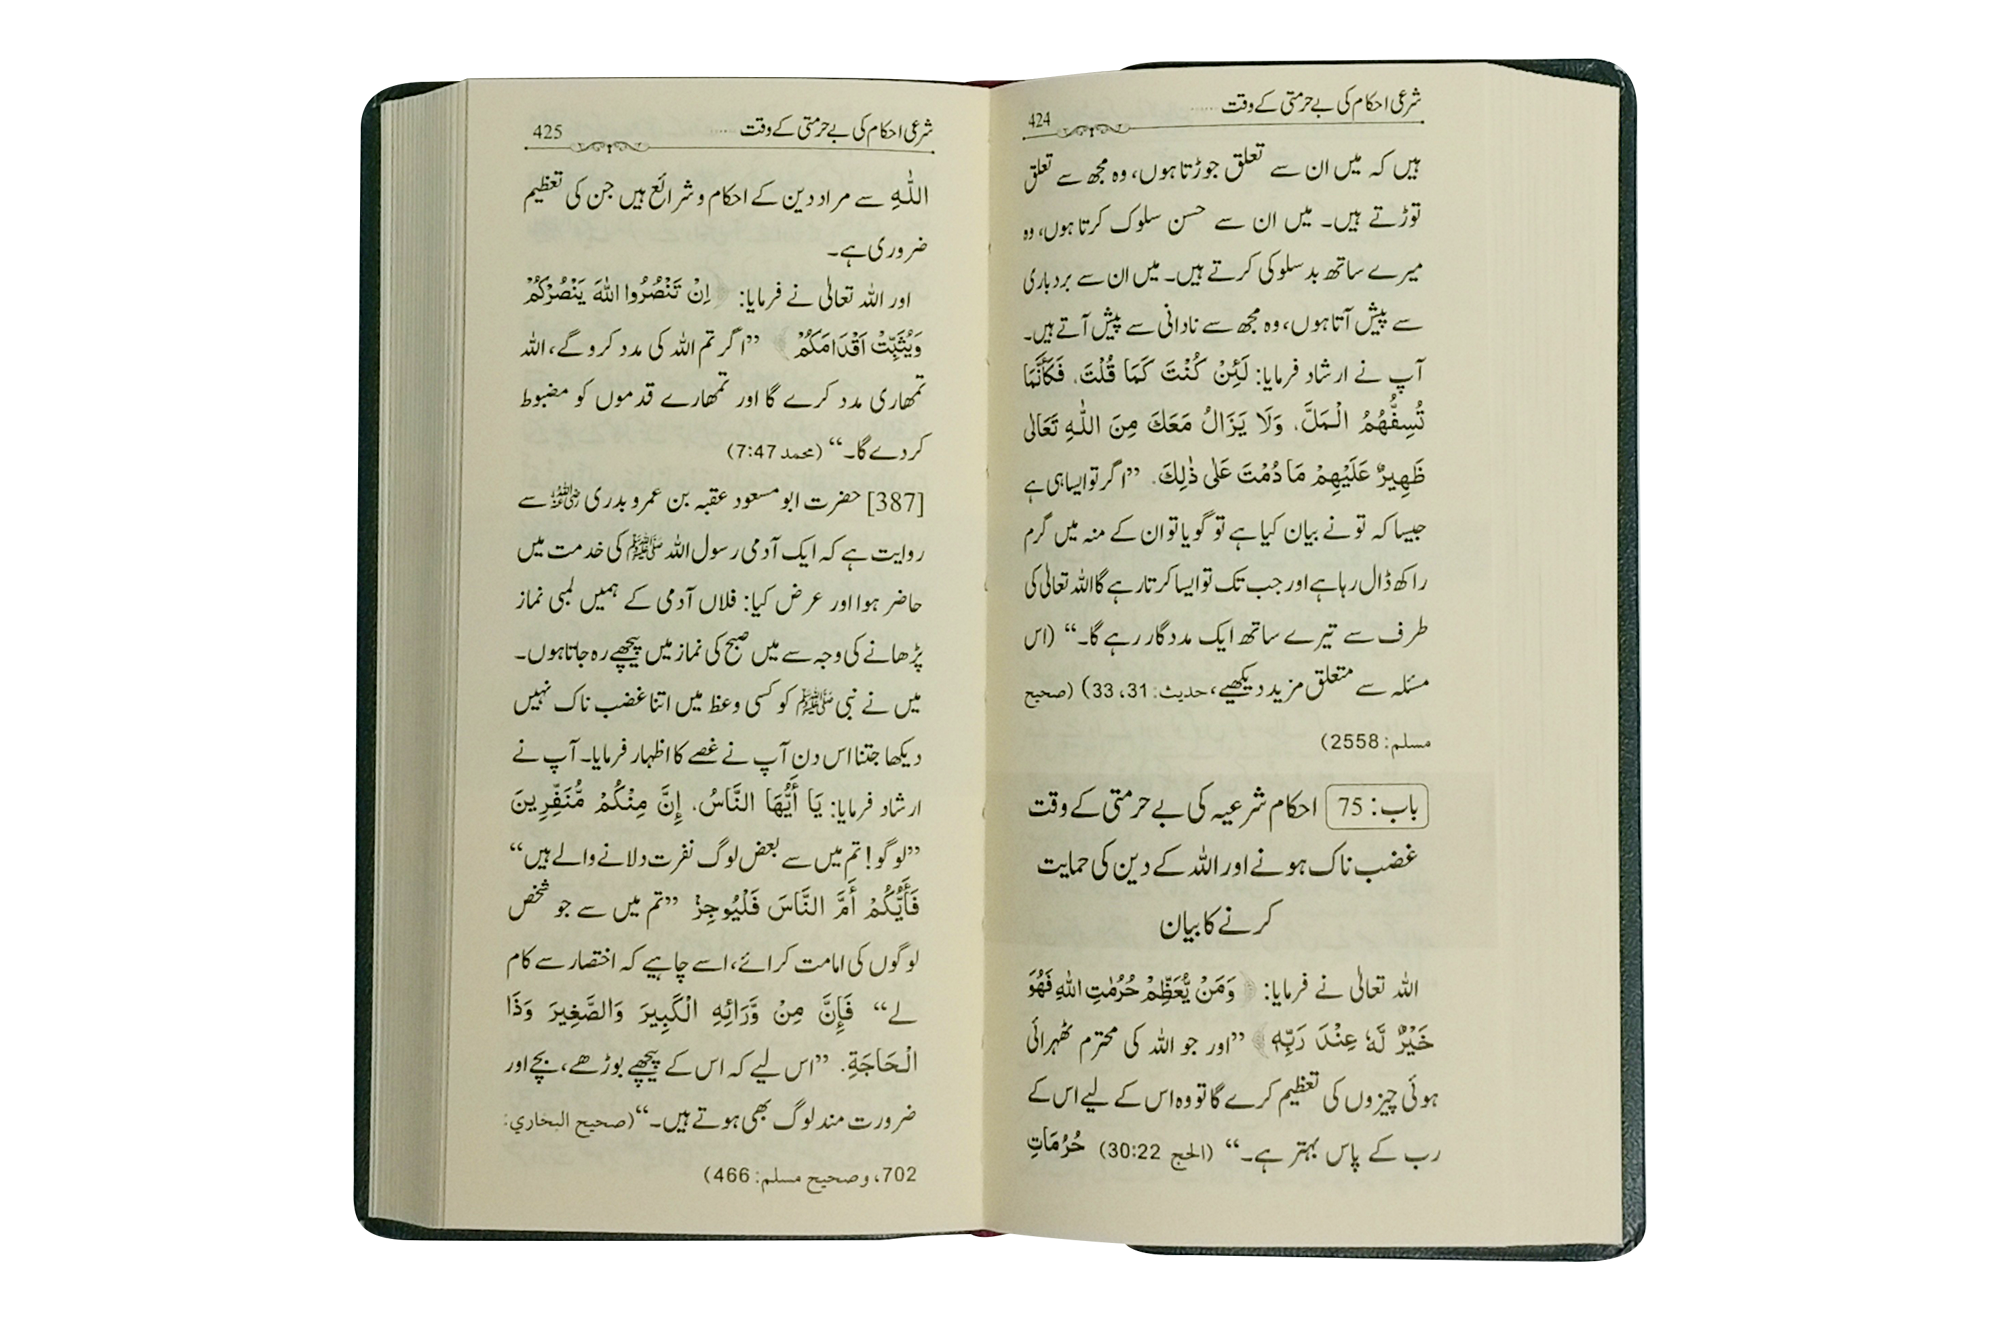 شرعی احکام کی بے حرمتی کے وقت ...... 424
ہیں کہ میں ان سے تعلق جوڑتا ہوں، وہ مجھ سے تعلق
توڑتے ہیں۔ میں ان سے حسن سلوک کرتا ہوں، وہ
میرے ساتھ بدسلوکی کرتے ہیں۔ میں ان سے بردباری
سے پیش آتا ہوں، وہ مجھ سے نادانی سے پیش آتے ہیں۔
آپ نے ارشاد فرمایا: لَئِنْ كُنْتَ كَمَا قُلْتَ، فَكَأَنَّمَا
تُسِفُّهُمُ الْمَلَّ، وَلَا يَزَالُ مَعَكَ مِنَ اللّٰهِ تَعَالٰى
ظَهِيرٌ عَلَيْهِمْ مَا دُمْتَ عَلٰى ذٰلِكَ. ”اگر تو ایسا ہی ہے
جیسا کہ تو نے بیان کیا ہے تو گویا تو ان کے منہ میں گرم
راکھ ڈال رہا ہے اور جب تک تو ایسا کرتا رہے گا اللہ تعالیٰ کی
طرف سے تیرے ساتھ ایک مددگار رہے گا۔“ (اس
مسئلہ سے متعلق مزید دیکھیے، حدیث: 31، 33) (صحیح
مسلم: 2558)
باب: 75 احکام شرعیہ کی بے حرمتی کے وقت
غضب ناک ہونے اور اللہ کے دین کی حمایت
کرنے کا بیان
اللہ تعالیٰ نے فرمایا: ﴿وَمَنْ يُّعَظِّمْ حُرُمٰتِ اللّٰهِ فَهُوَ
خَيْرٌ لَّهٗ عِنْدَ رَبِّهٖ﴾ ”اور جو اللہ کی محترم ٹھہرائی
ہوئی چیزوں کی تعظیم کرے گا تو وہ اس کے لیے اس کے
رب کے پاس بہتر ہے۔“ (الحج 30:22) حُرُمَاتِ
شرعی احکام کی بے حرمتی کے وقت ...... 425
اللّٰهِ سے مراد دین کے احکام و شرائع ہیں جن کی تعظیم
ضروری ہے۔
اور اللہ تعالیٰ نے فرمایا: ﴿اِنْ تَنْصُرُوا اللّٰهَ يَنْصُرْكُمْ
وَيُثَبِّتْ اَقْدَامَكُمْ﴾ ”اگر تم اللہ کی مدد کرو گے، اللہ
تمھاری مدد کرے گا اور تمھارے قدموں کو مضبوط
کر دے گا۔“ (محمد 7:47)
[387] حضرت ابو مسعود عقبہ بن عمرو بدری رضی اللہ عنہ سے
روایت ہے کہ ایک آدمی رسول اللہ ﷺ کی خدمت میں
حاضر ہوا اور عرض کیا: فلاں آدمی کے ہمیں لمبی نماز
پڑھانے کی وجہ سے میں صبح کی نماز میں پیچھے رہ جاتا ہوں۔
میں نے نبی ﷺ کو کسی وعظ میں اتنا غضب ناک نہیں
دیکھا جتنا اس دن آپ نے غصے کا اظہار فرمایا۔ آپ نے
ارشاد فرمایا: يَا أَيُّهَا النَّاسُ، إِنَّ مِنْكُمْ مُّنَفِّرِينَ
”لوگو! تم میں سے بعض لوگ نفرت دلانے والے ہیں“
فَأَيُّكُمْ أَمَّ النَّاسَ فَلْيُوجِزْ ”تم میں سے جو شخص
لوگوں کی امامت کرائے، اسے چاہیے کہ اختصار سے کام
لے“ فَإِنَّ مِنْ وَّرَائِهِ الْكَبِيرَ وَالصَّغِيرَ وَذَا
الْحَاجَةِ. ”اس لیے کہ اس کے پیچھے بوڑھے، بچے اور
ضرورت مند لوگ بھی ہوتے ہیں۔“ (صحيح البخاري:
702، وصحيح مسلم: 466)